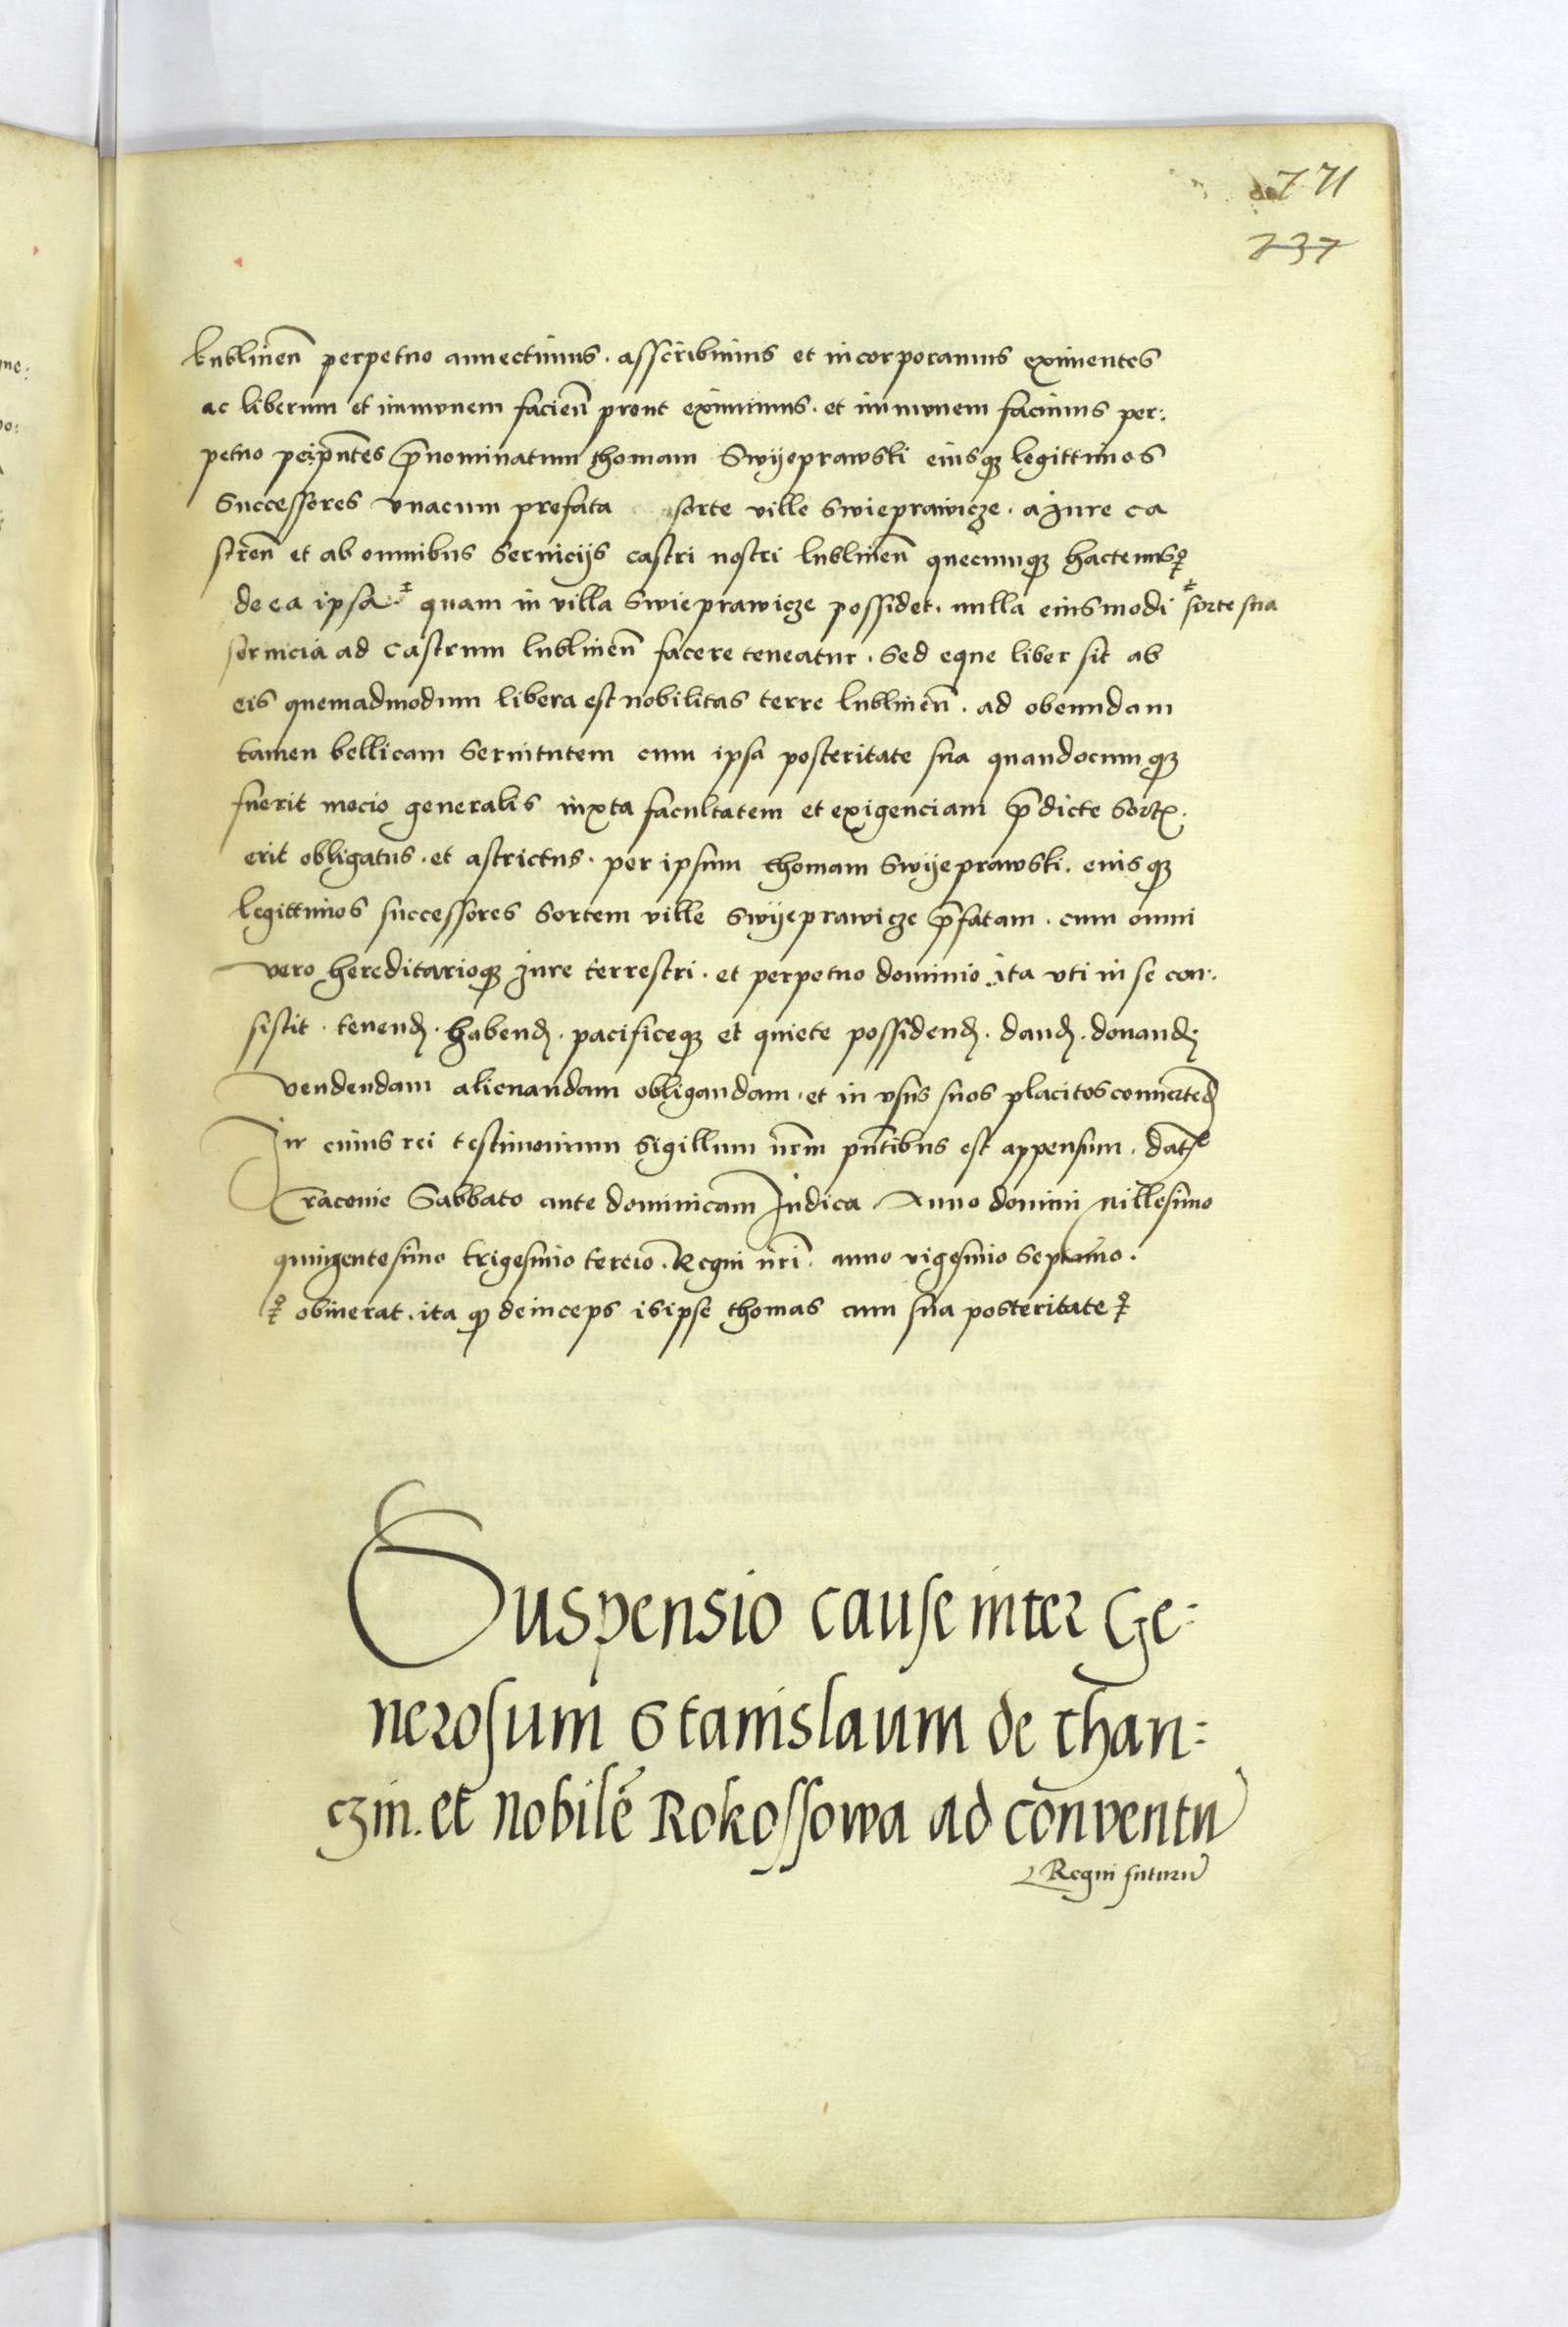 771
737
lublinen̄ perpetuo annectimus . asscribimus et incorporamus eximentes
ac liberum et immunem facien̄ prout eximimus . et immunem facimus per:
petuo p̄nominatum thomam Swÿeprawski eiusqȝ legittimos
Successores vnacum prefata sorte ville Swieprawicze . a Jure ca
stren̄ et ab omnibus Seruicÿs castri nostri lublinen̄ quecunqȝ hactenus ♀
de ea ipsa ‡ quam in villa Swieprawicze possidet . nulla eiusmodi ‡ sorte sua
seruicia ad castrum lublinen̄ facere teneatur . Sed eque liber sit ab
eis quemadmodum libera est nobilitas terre lublinen̄ . ad obeundam
tamen bellicam Seruitutem cum ipsa posteritate sua quandocunqȝ
fuerit mocio generalis iuxta facultatem et exigenciam p̄dicte Sortꝭ .
erit obligatus . et astrictus . per ipsum thomam Swÿeprawski . eiusqȝ
legittimos successores Sortem ville Swÿeprawicze p̄fatam . cum omni
vero hereditarioqȝ Jure terrestri . et perpetuo dominio ita vti in se con:
sistit . tenenđ . habenđ . pacificeqȝ et quiete possidenđ . danđ . donanđ
vendendam alienandam obligandam . et in vsus suos placitos conuertenđ
In cuius rei testimonium Sigillum nr̄m pn̄tibus est appensum . Dat̄
Cracouie Sabbato ante dominicam Judica . Anno domini Millesimo
quingentesimo trigesimo tercio . Regni nr̄i . anno vigesimo Septimo .
♀ obiuerat . ita qȝ deinceps is ipse thomas cum sua posteritate ♀
Suspensio cause inter Ge:
nerosum Stanislaum de than:
czin . et nobilē Rokossowa ad conventū
Regni futurū